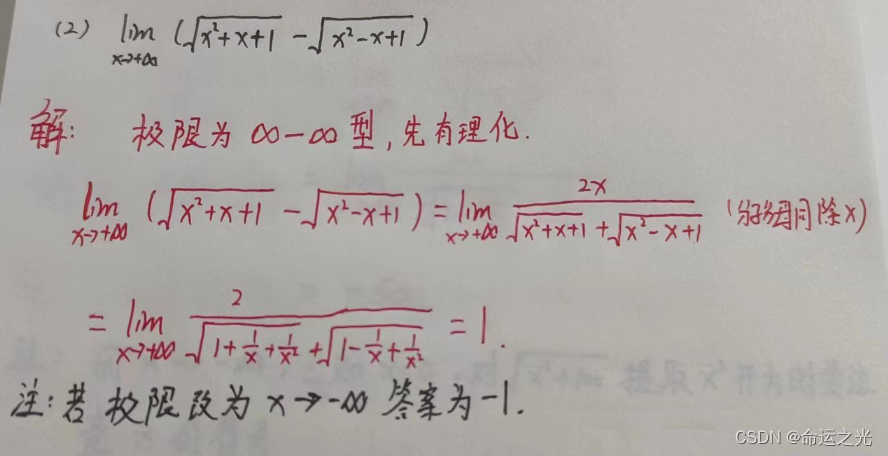 (2) lim x→+∞ (√(x²+x+1) - √(x²-x+1))
解: 极限为 ∞-∞ 型,先有理化.
lim x→+∞ (√(x²+x+1) - √(x²-x+1)) = lim x→+∞ 2x/(√(x²+x+1) + √(x²-x+1)) (分子分母同除x)
= lim x→+∞ 2/(√(1+1/x+1/x²) + √(1-1/x+1/x²)) = 1.
注:若极限改为 x→-∞ 答案为-1.
CSDN @命运之光